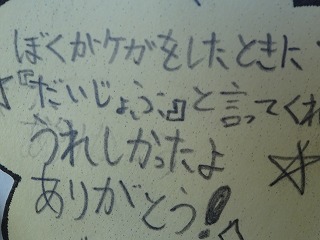 ぼくがケガをしたときに
『だいじょうぶ』と言ってくれ
うれしかったよ
ありがとう!